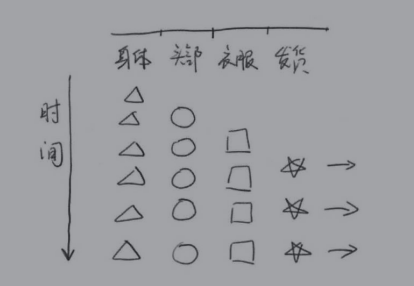 身体 头部 衣服 发货
时间